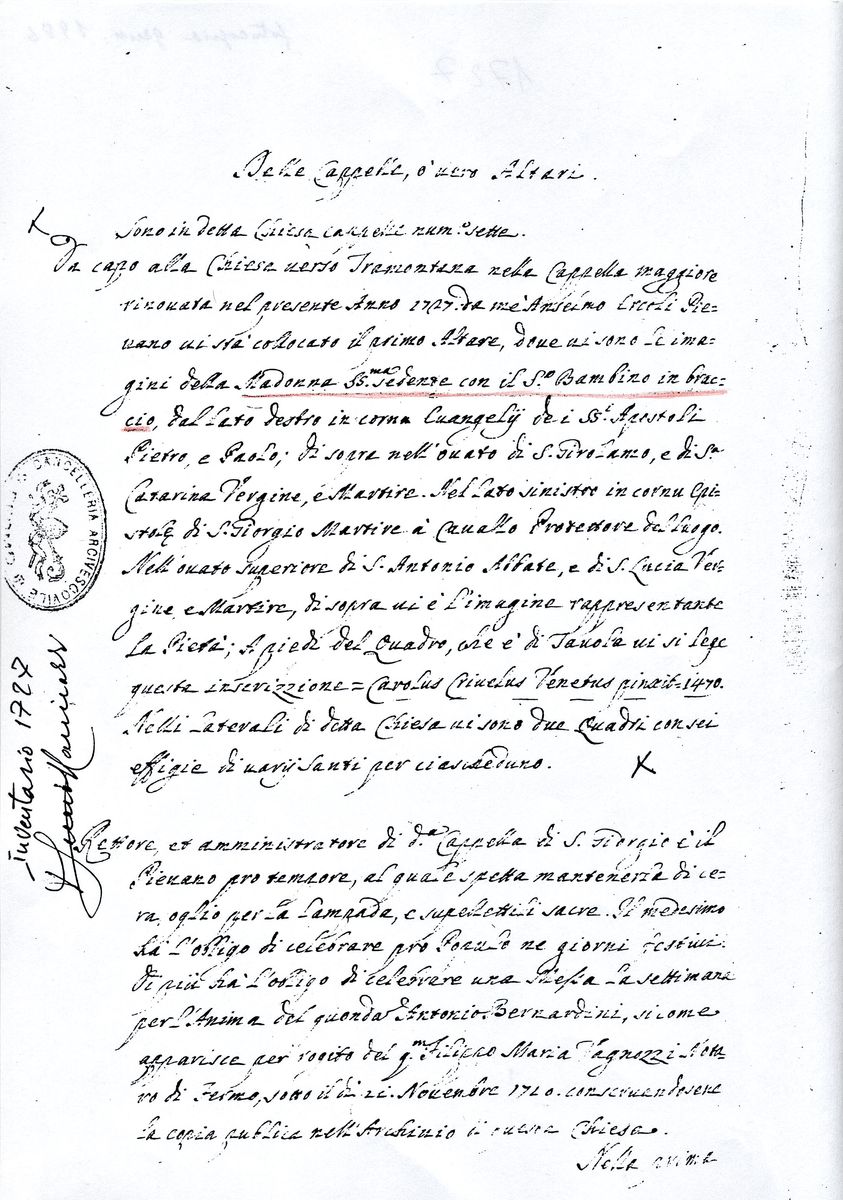 Delle Cappelle, ò vero Altari.
Sono in detta Chiesa cappelle num.o sette.
Da capo alla Chiesa verso Tramontana nella Cappella maggiore
rinovata nel presente Anno 1727. da mè Anselmo Ercoli Pie=
vano vi stà collocato il primo Altare, dove vi sono le ima=
gini della Madonna SS.ma sedente con il S.o Bambino in brac=
cio, dal lato destro in cornu Evangelij de i SS.i Apostoli
Pietro, e Paolo; di sopra nell'ovato di S. Girolamo, e di S.a
Catarina Vergine, e Martire. Nel lato sinistro in cornu Epi=
stolę di S. Giorgio Martire à Cavallo Protettore del luogo.
Nell'ovato superiore di S. Antonio Abbate, e di S. Lucia Ver=
gine, e Martire, di sopra vi è l'imagine rappresentante
la Pietà; A piedi del Quadro, che è di Tavola vi si lege
questa inscrizzione = Carolus Crivelus Venetus pinxit = 1470.
Nelli laterali di detta Chiesa vi sono due Quadri con sei
effigie di varij Santi per ciascheduno.
X
X
Rettore, et amministratore di d.a Cappella di S. Giorgio è il
Pievano pro tempore, al quale spetta mantenerla di ce=
ra, oglio per la lampada, e supellettili sacre. Il medesimo
hà l'obligo di celebrare pro Populo ne giorni festivi.
Di più hà l'obligo di celebrare una Messa la settimana
per l'Anima del quondam Antonio Bernardini, si come
apparisce per rogito del q.m Filippo Maria Vagnozzi Nota=
ro di Fermo, sotto il di 21. Novembre 1710. conservandosene
la copia publica nell'Archivio di questa Chiesa.
Nella prima
CANCELLERIA ARCIVESCOVILE
Inventario 1727
1727